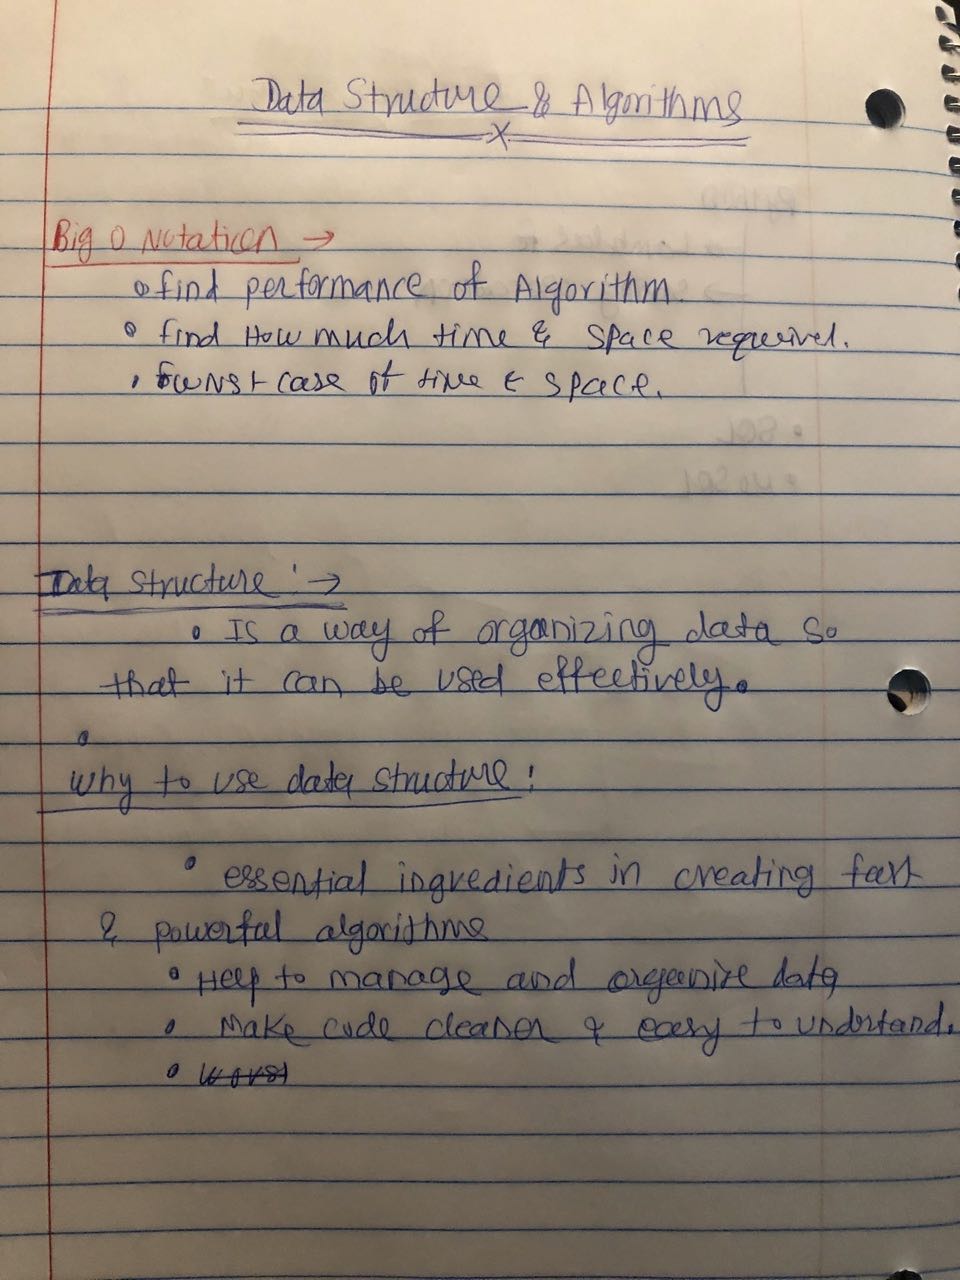 Data Structure & Algorithms
Big O Notation →
• find performance of Algorithm.
• find How much time & space required.
• worst case of time & space.
Data structure :→
• Is a way of organizing data so
that it can be used effectively.
•
Why to use data structure:
• essential ingredients in creating fast
& powerful algorithms
• Help to manage and organize data
• Make code cleaner & easy to understand.
• worst